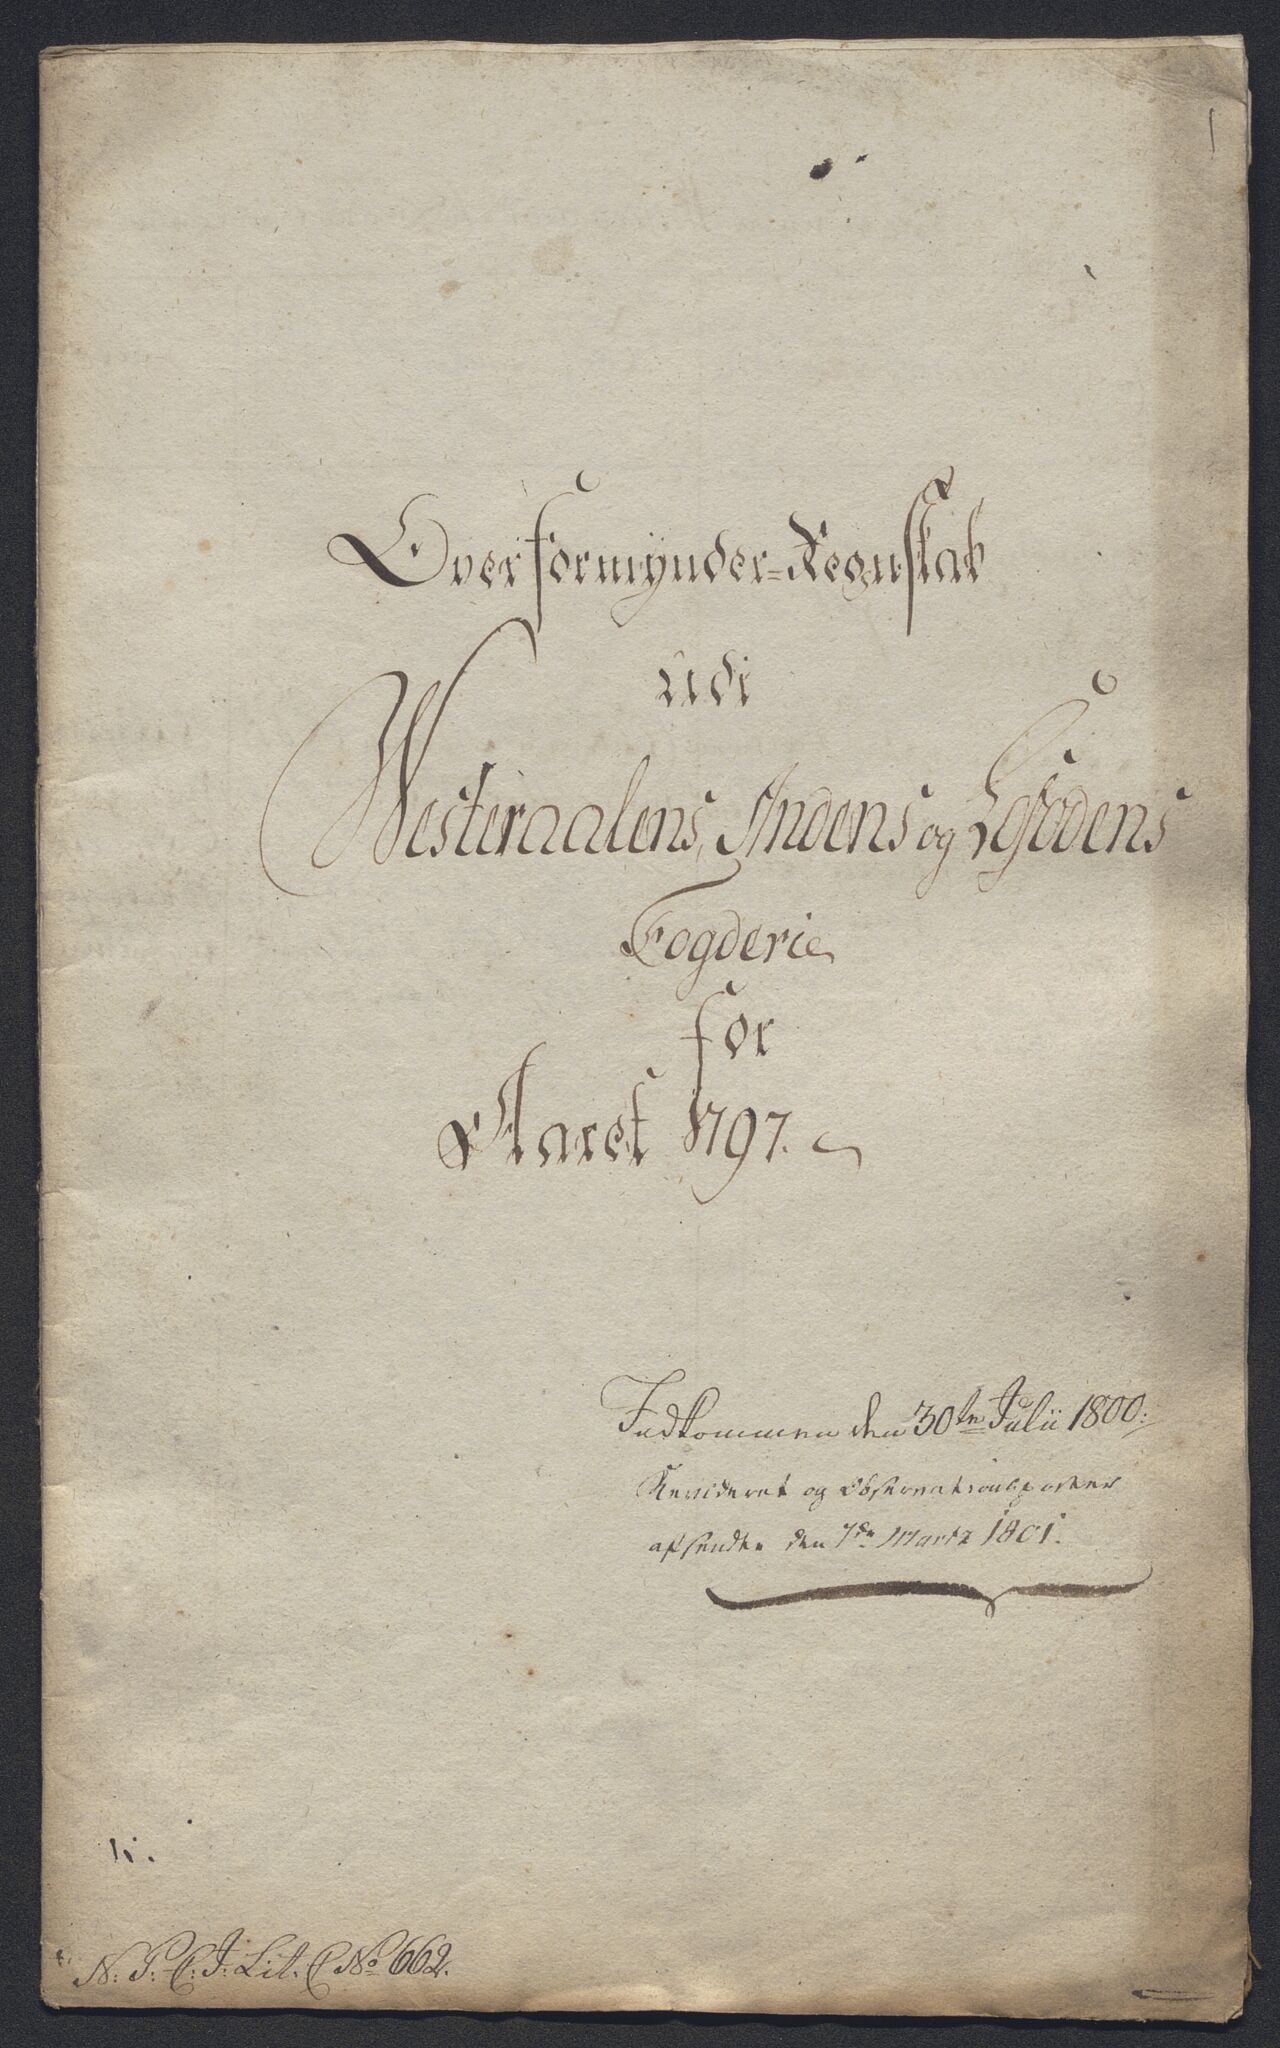 1
Overformynder-Regnskab
udi
Westeraalens, Andenes og Lofodens
Fogderie
for
Aaret 1797.
Indkommen den 30te Julii 1800.
Revideret og Observationsposter
afsendte den 7de Martz 1801.
N: P: C: J: Lit. C No 662.